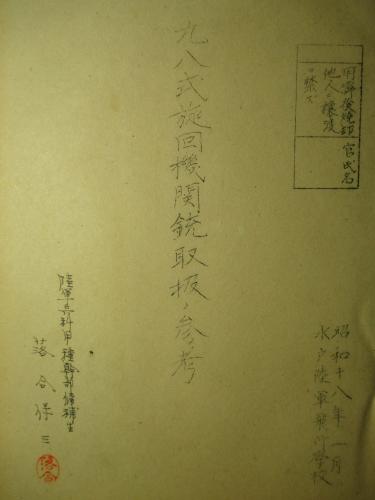 用済後焼却
他人ニ譲渡
ヲ禁ズ
官氏名
九八式旋回機関銃取扱ノ参考
昭和十八年一月
水戸陸軍飛行学校
陸軍兵科甲種幹部候補生
落合保三
落合